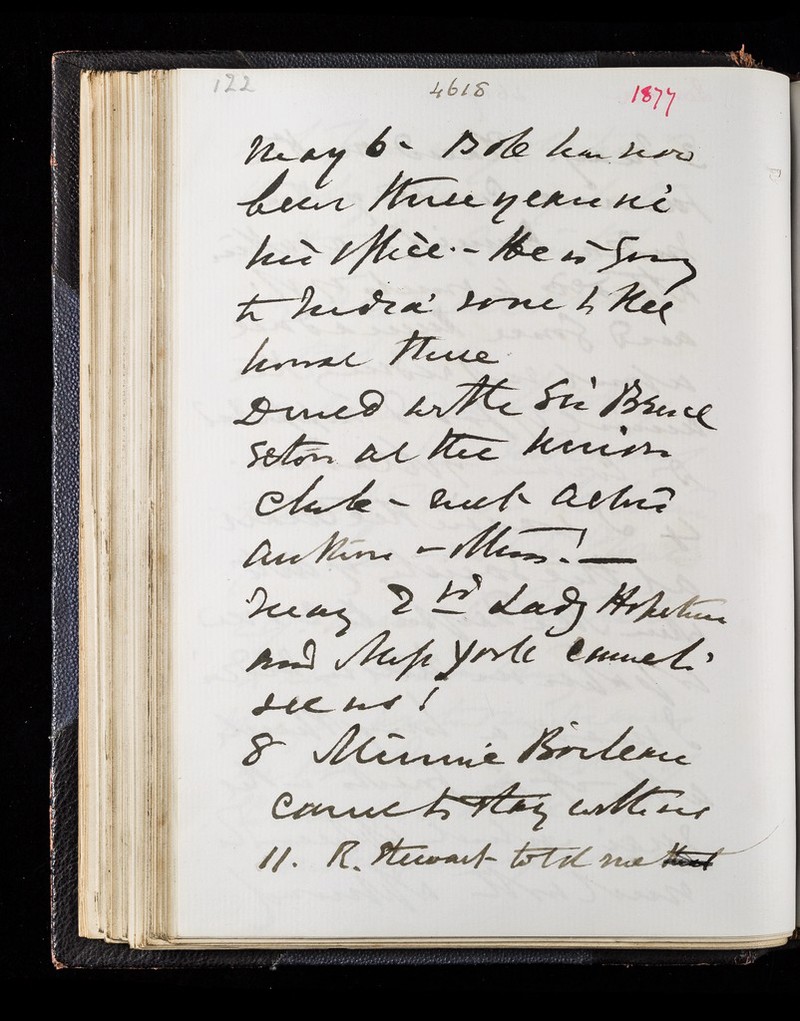 122 4618 1877
May 6 - Bob has now
been three years in
his office. - He is going
to India some to Hee
house there
Dined with Sir Bruce
Seton at the Union
Club - met
- others! -
May 2nd Lady Hopetoun
and Miss York came to
see us!
8 Minnie Boileau
came to stay with us
11. R. Stewart told me that